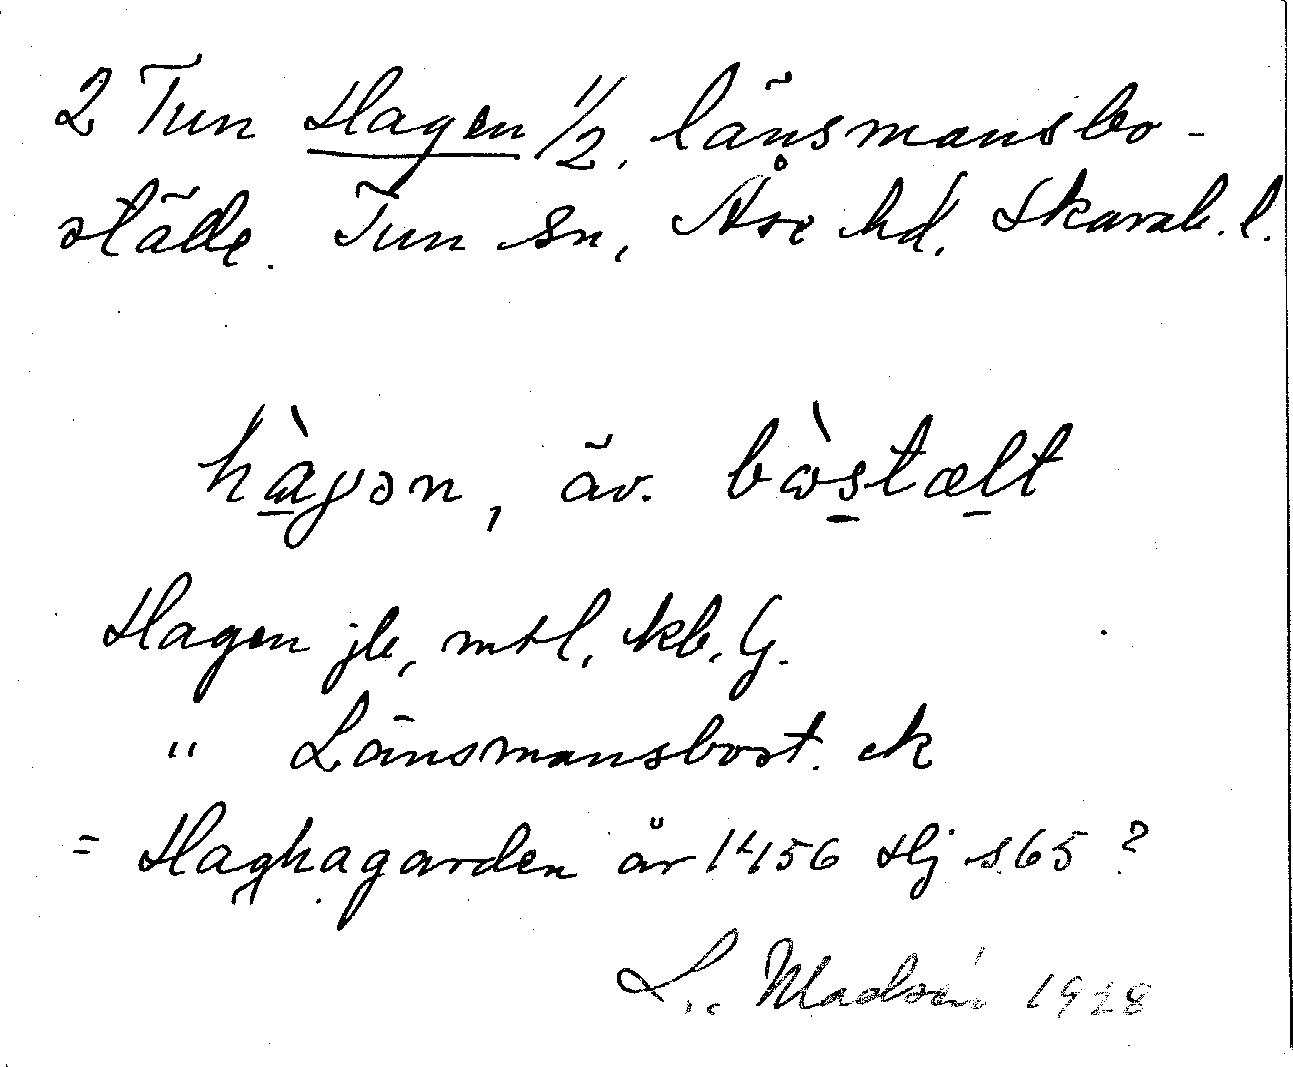 2 Tun Hagen 1/2, länsmansbo-
ställe. Tun sn, Åse hd, Skarab. l.
hàgən, äv. bòstælt
Hagen jb, mtl, kb, G.
" Länsmansbost. ek
= Haghagarden år 1456 Hj s65 ?
L. Madsén 1928